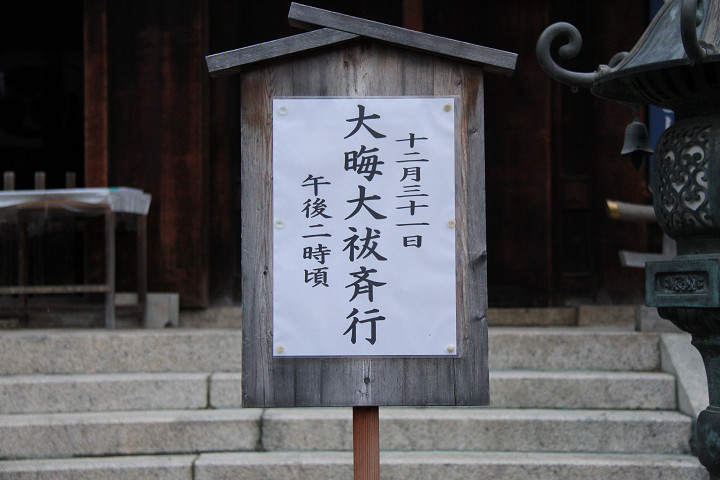 十二月三十一日
大晦大祓斉行
午後二時頃